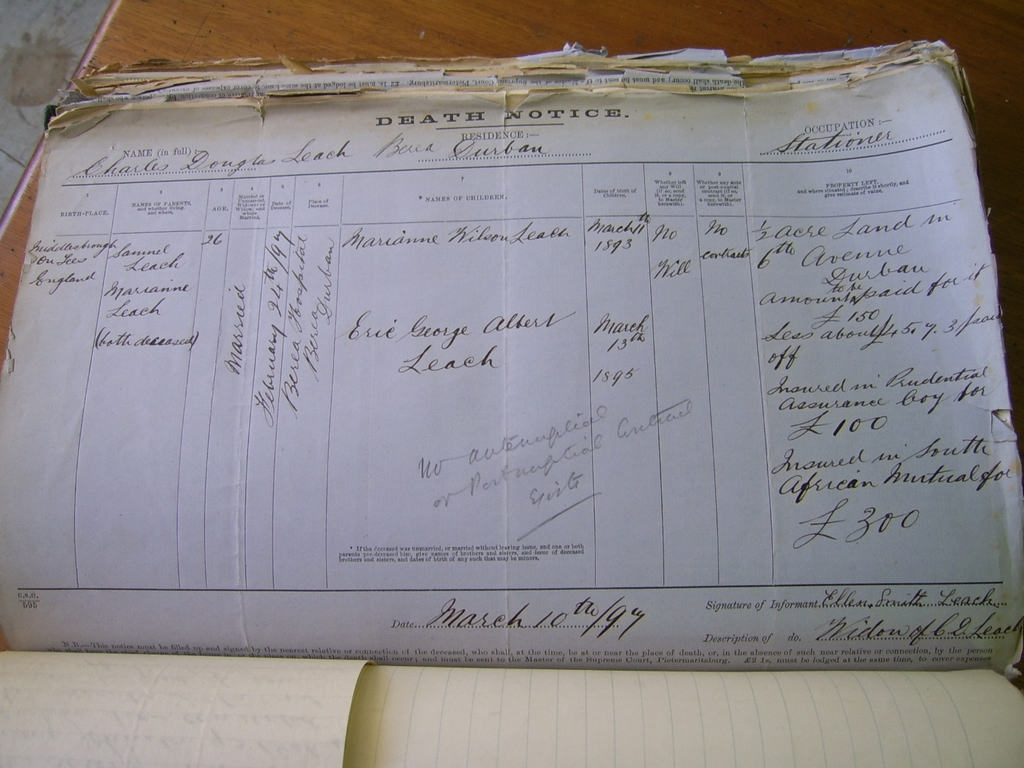 DEATH NOTICE.
NAME (in full) :— RESIDENCE :— OCCUPATION :—
Charles Douglas Leach Berea Durban Stationer
BIRTH-PLACE.
NAMES OF PARENTS,
and whether living,
and where.
AGE.
Married or
Unmarried,
Widower or
Widow; and
whom
Married.
Date of
Decease.
Place of
Decease.
* NAMES OF CHILDREN.
Dates of birth of
Children.
Whether left
any Will
(if so,
send it,
or a copy,
to Master
herewith).
Whether any ante
or post-nuptial
contract (if so,
send it, or
a copy, to Master
herewith).
10
PROPERTY LEFT,
and where situated; describe it shortly, and
give estimate of value.
Middlesbrough
On Tees
England
Samuel
Leach
Marianne
Leach
(both deceased)
26
Married
February 24th/97
Berea Hospital
Berea Durban
Marianne Wilson Leach
March 11th
1893
Eric George Albert
Leach
March
13th
1895
No
Will
No
contract
1/2 acre Land in
6th Avenue
Durban
amount to be paid for it
£150
Less about £45.7.3 paid
off
Insured in Prudential
Assurance Coy for
£100
Insured in South
African Mutual for
£300
No antenuptial
or Postnuptial Contract
exists
* If the deceased was unmarried, or married without leaving issue, and one or both
parents pre-deceased him, give names of brothers and sisters, and issue of deceased
brothers and sisters, and dates of birth of any such that may be minors.
C.S.O.
595
Date March 10th/97
Signature of Informant Ellen Smith Leach
Description of do. Widow of C D Leach
N.B.—This notice must be filled up and signed by the nearest relative or connection of the deceased, who shall, at the time, be at or near the place of death, or, in the absence of such near relative or connection, by the person
shall occur; and must be sent to the Master of the Supreme Court, Pietermaritzburg. £2 1s. must be lodged at the same time, to cover expenses